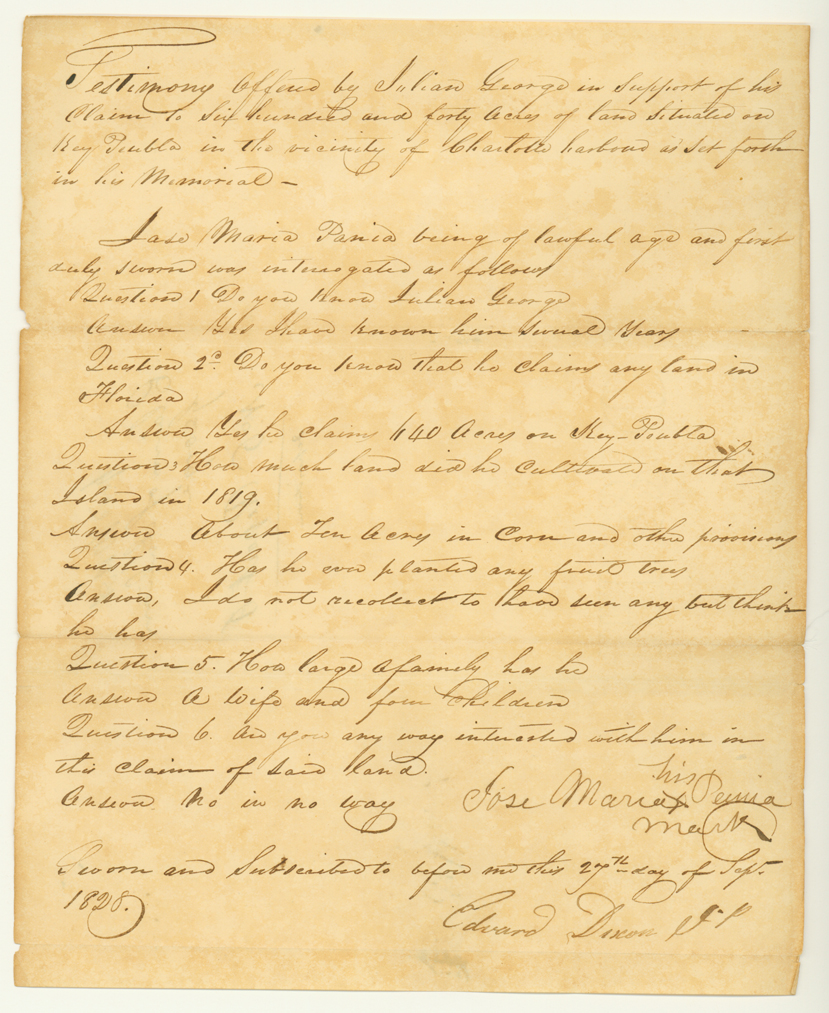 Testimony Offered by Julian George in Support of his
Claim to Six hundred and forty Acres of land Situated on
Key Peubla in the vicinity of Charlotte harbour as Set forth
in his Memorial —
Jose Maria Pania being of lawful age and first
duly sworn was interrogated as follows
Question 1 Do you Know Julian George
Answer Yes I have Known him several Years
Question 2d. Do you Know that he Claims any land in
Florida
Answer Yes he Claims 640 Acres on Key-Peubla
Question 3 How much land did he Cultivate on that
Island in 1819.
Answer About Ten Acres in Corn and other provisions
Question 4. Has he ever planted any fruit trees
Answer, I do not recollect to have seen any but think
he has
Question 5. How large a family has he
Answer A Wife and four Children
Question 6. are you any way interested with him in
this Claim of said land.
Answer No in no way
his
Jose Maria X Penia
Mark
Sworn and Subscribed to before me this 27th day of Sept.
1828.
Edward Dixon JP